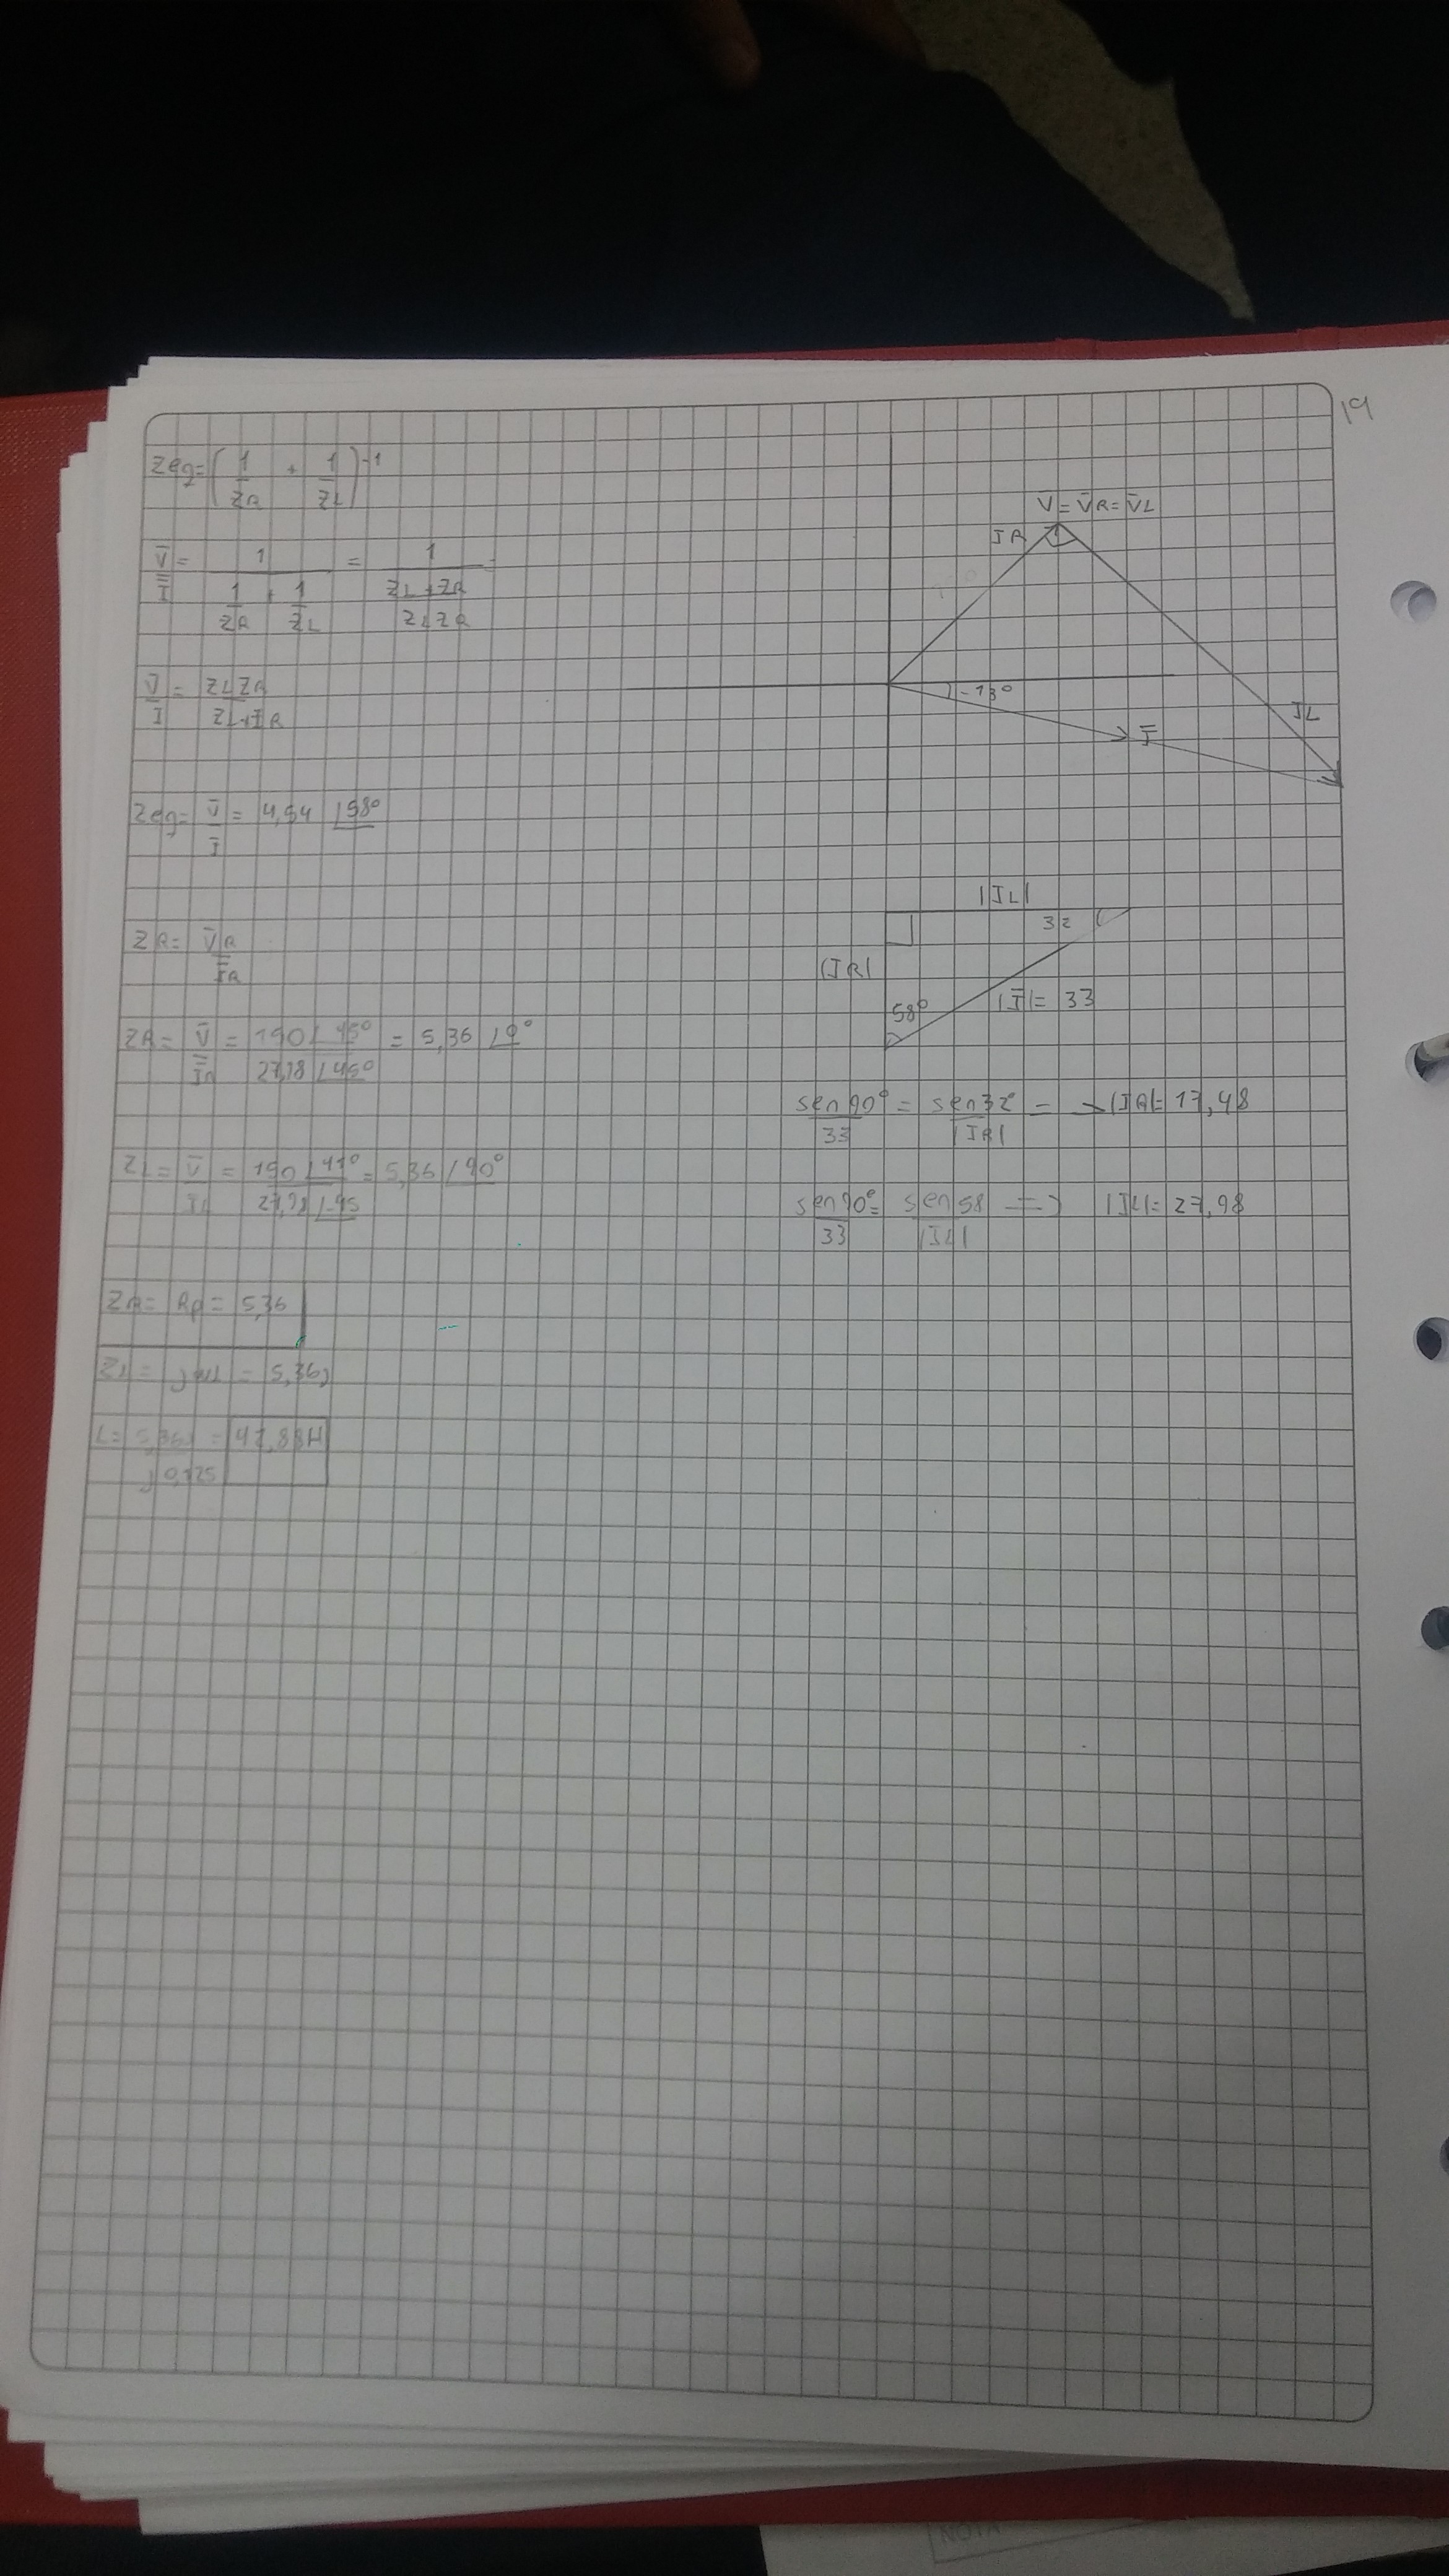 19
Zeq= ( 1/ZR + 1/ZL )^-1
V̄/Ī = 1/(1/ZR + 1/ZL) = 1/((ZL+ZR)/(ZLZR)) =
V̄/Ī = ZLZR/(ZL+ZR)
Zeq= V̄/Ī = 4,54 ∠58°
ZR= V̄R/ĪR
ZR= V̄/ĪR = 150∠45°/27,98∠45° = 5,36 ∠0°
ZL= V̄/IL = 150∠45°/27,98∠-45 = 5,36 ∠90°
ZR= Rp= 5,36
ZL= jωL = 5,36j
L= 5,36j/j0,125 = 42,88H
V̄=V̄R=V̄L
IR
-13°
Ī
IL
|IL|
32
|IR|
58°
|Ī|= 33
sen90°/33 = sen32°/|IR| = -> |IR|= 17,48
sen90°/33 = sen58/|IL| => |IL|= 27,98
NOTA